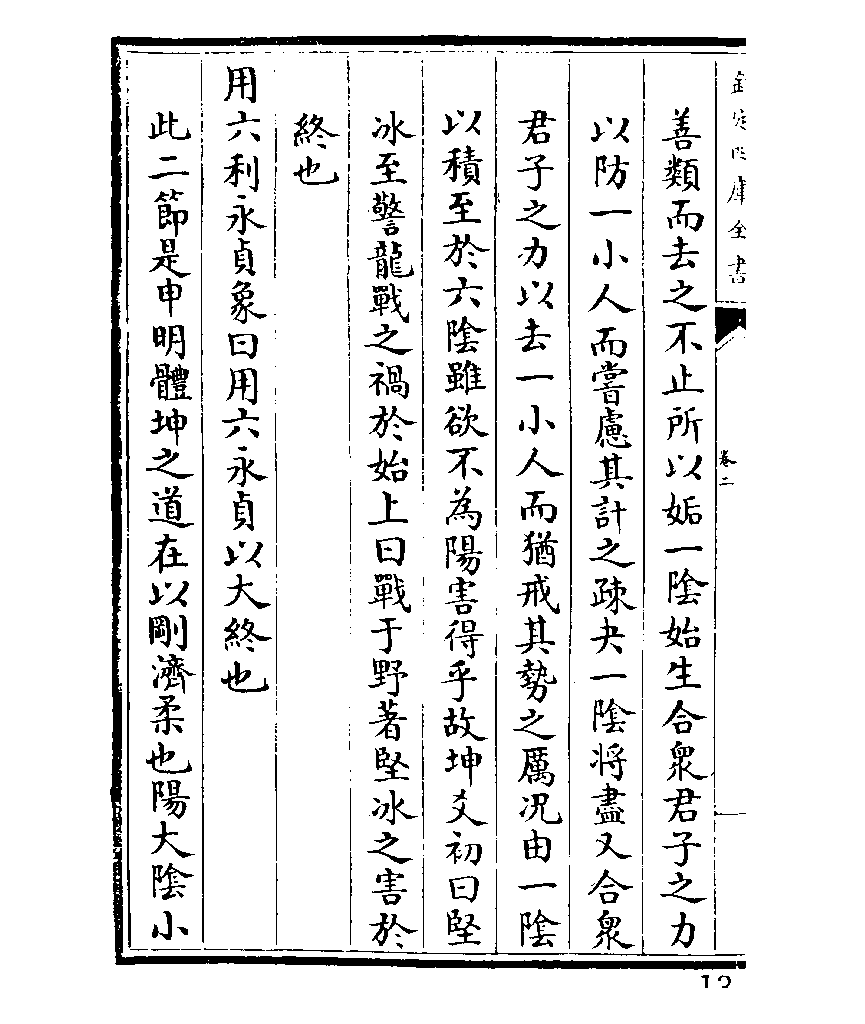 欽定四庫全書
卷二
善類而去之不止所以姤一陰始生合衆君子之力
以防一小人而嘗慮其計之疎夬一陰将盡又合衆
君子之力以去一小人而猶戒其勢之厲况由一陰
以積至於六陰雖欲不為陽害得乎故坤爻初曰堅
冰至警龍戰之禍於始上曰戰于野著堅冰之害於
終也
用六利永貞象曰用六永貞以大終也
此二節是申明體坤之道在以剛濟柔也陽大陰小
12